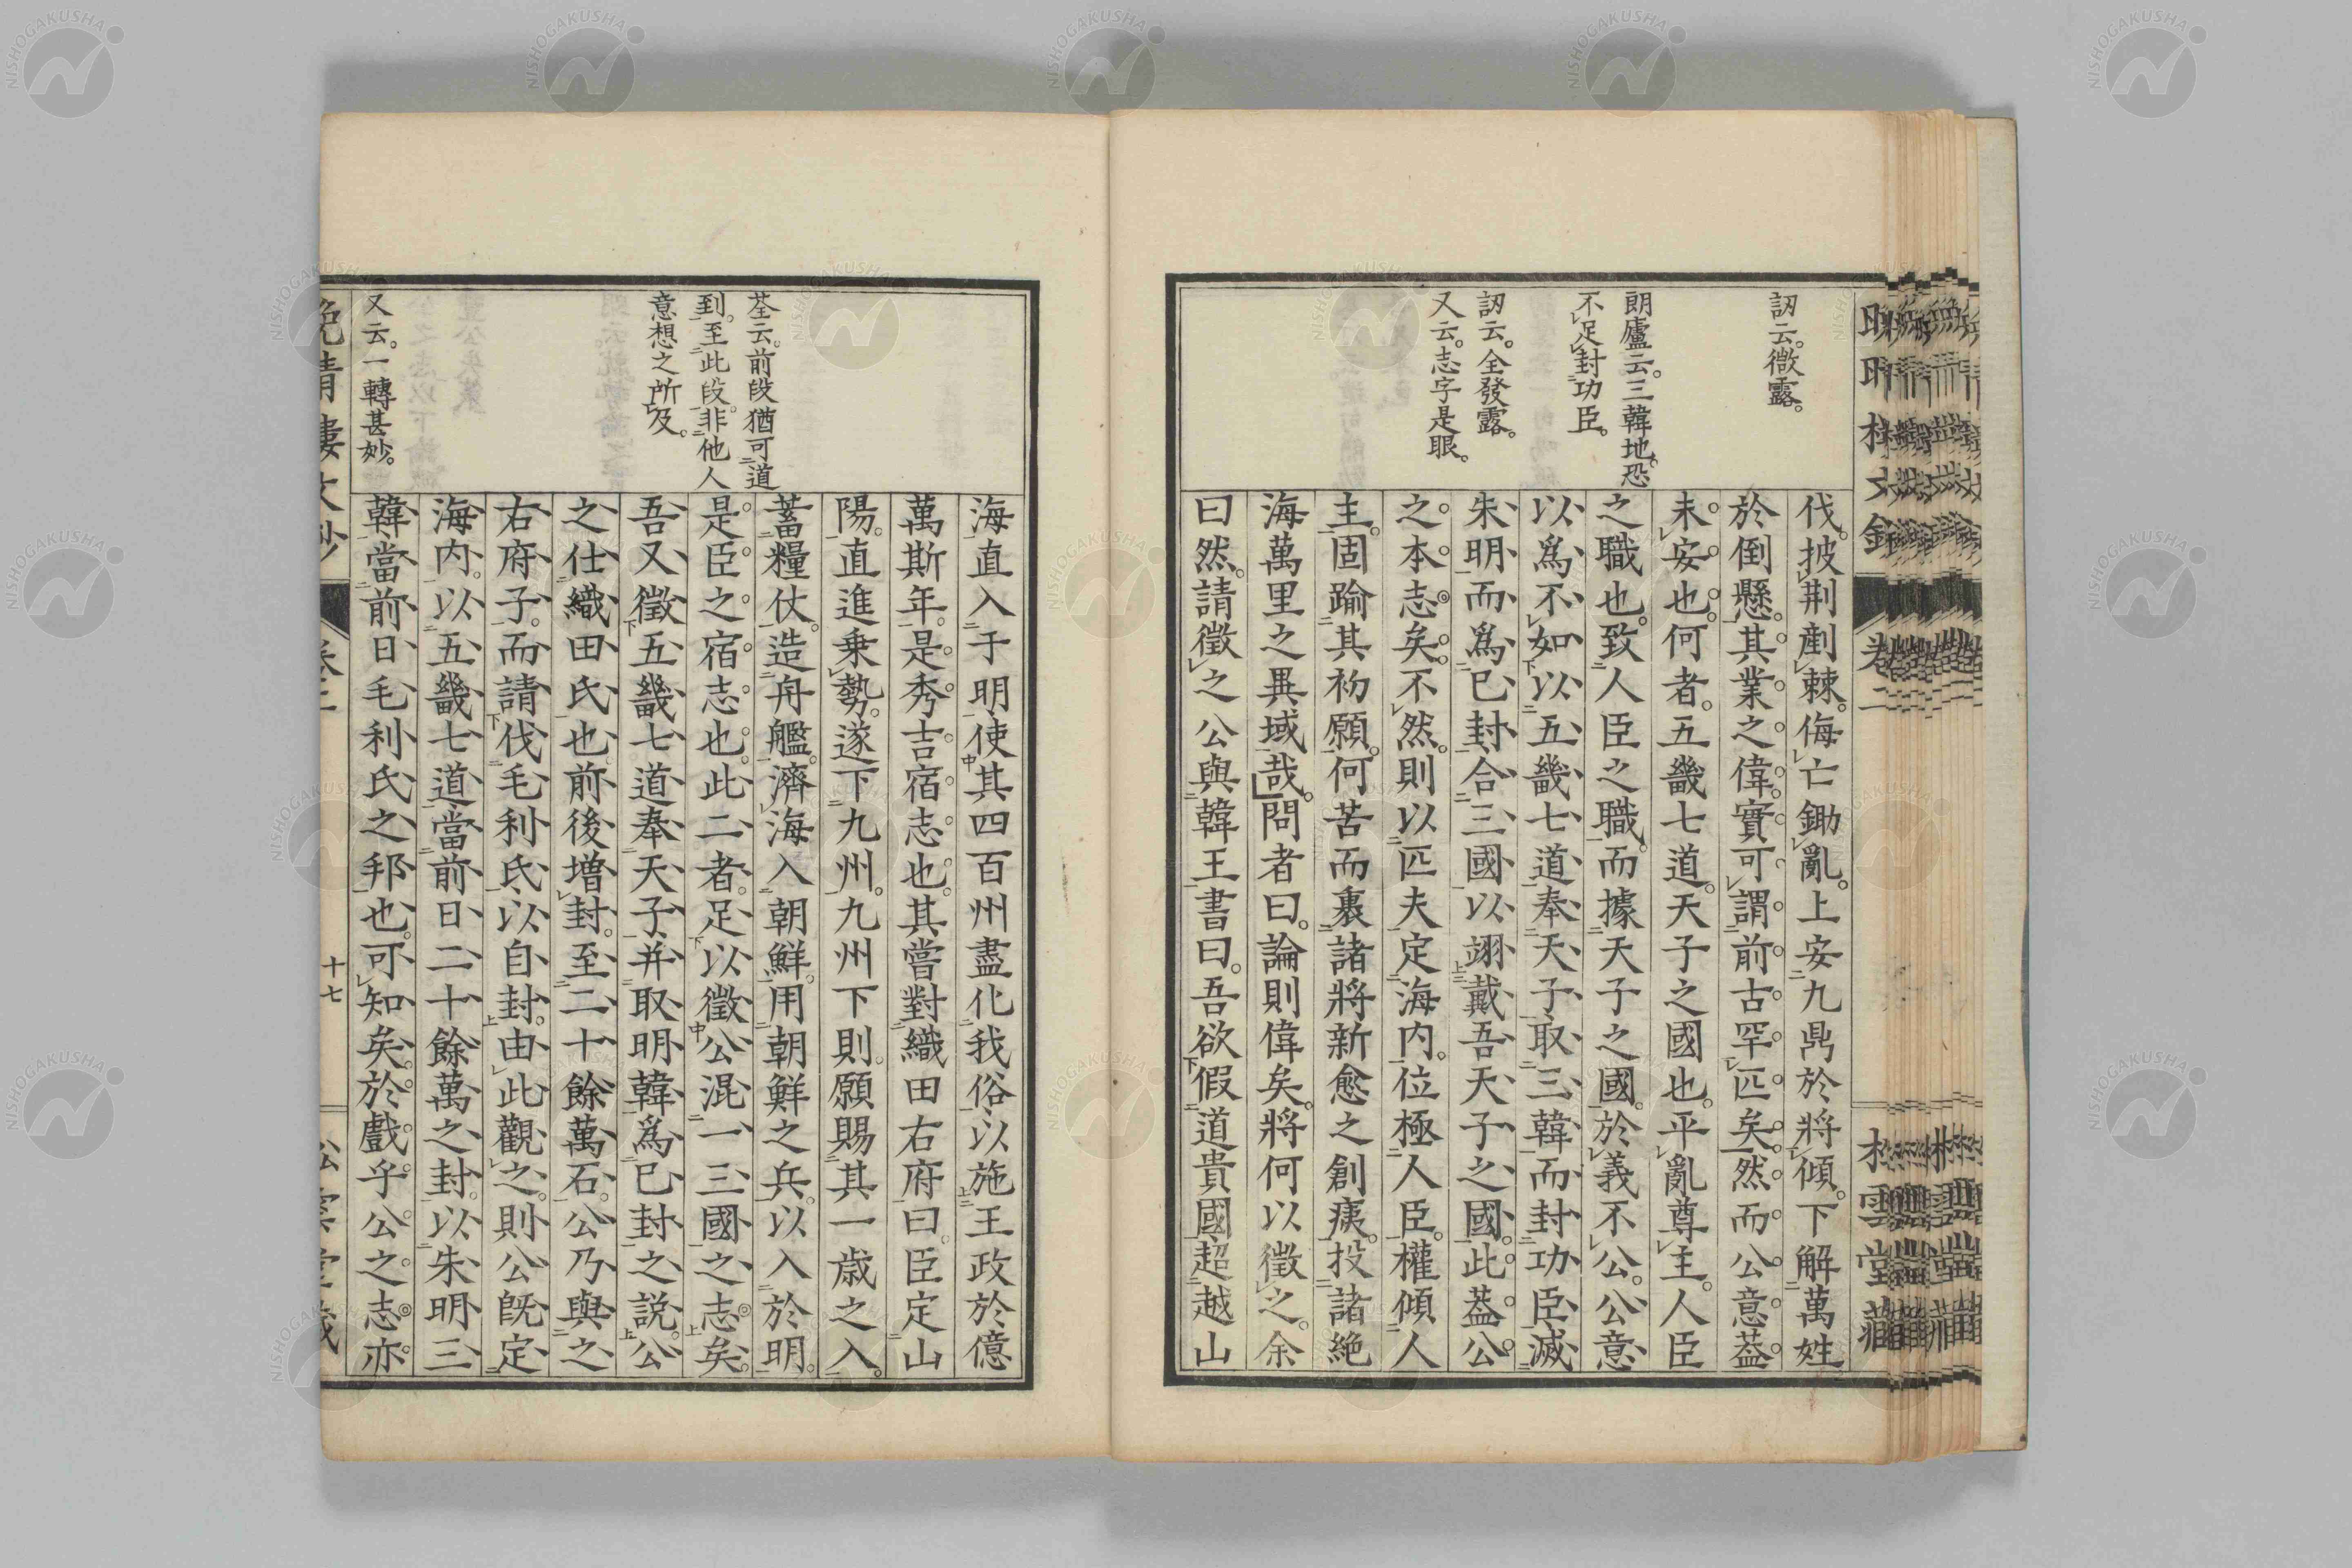 訒云。微露。
朗廬云。三韓地。恐
不足封功臣。
訒云。全發露。
又云。志字是眼。
伐。披荆剷棘。侮亡鋤亂。上安九鼎於將傾。下解萬姓
於倒懸。其業之偉。實可謂前古罕匹矣。然而公意。葢
未安也。何者。五畿七道。天子之國也。平亂尊主。人臣
之職也。致人臣之職。而據天子之國。於義不公。公意
以爲不如以五畿七道奉天子。取三韓而封功臣。滅
朱明而爲已封。合三國以翊戴吾天子之國。此葢公
之本志矣。不然。則以匹夫定海内。位極人臣。權傾人
主。固踰其初願。何苦而裹諸將新愈之創痍。投諸絶
海萬里之異域哉。問者曰。論則偉矣。將何以徵之。余
曰。然。請徵之公與韓王書曰。吾欲假道貴國。超越山
荃云。前段猶可道
到。至此段。非他人
意想之所及。
又云。一轉甚妙。
海直入于明。使其四百州盡化我俗。以施王政於億
萬斯年。是秀吉宿志也。其嘗對織田右府曰。臣定山
陽。直進乘勢。遂下九州。九州下則。願賜其一歳之入。
蓄糧仗。造舟艦。濟海入朝鮮。用朝鮮之兵。以入於明。
是臣之宿志也。此二者。足以徵公混一三國之志矣。
吾又徵五畿七道奉天子。并取明韓爲已封之説。公
之仕織田氏也。前後增封。至二十餘萬石。公乃與之
右府子。而請伐毛利氏。以自封。由此觀之。則公旣定
海内。以五畿七道當前日二十餘萬之封。以朱明三
韓當前日毛利氏之邦也。可知矣。於戲乎。公之志亦
卷二
十七